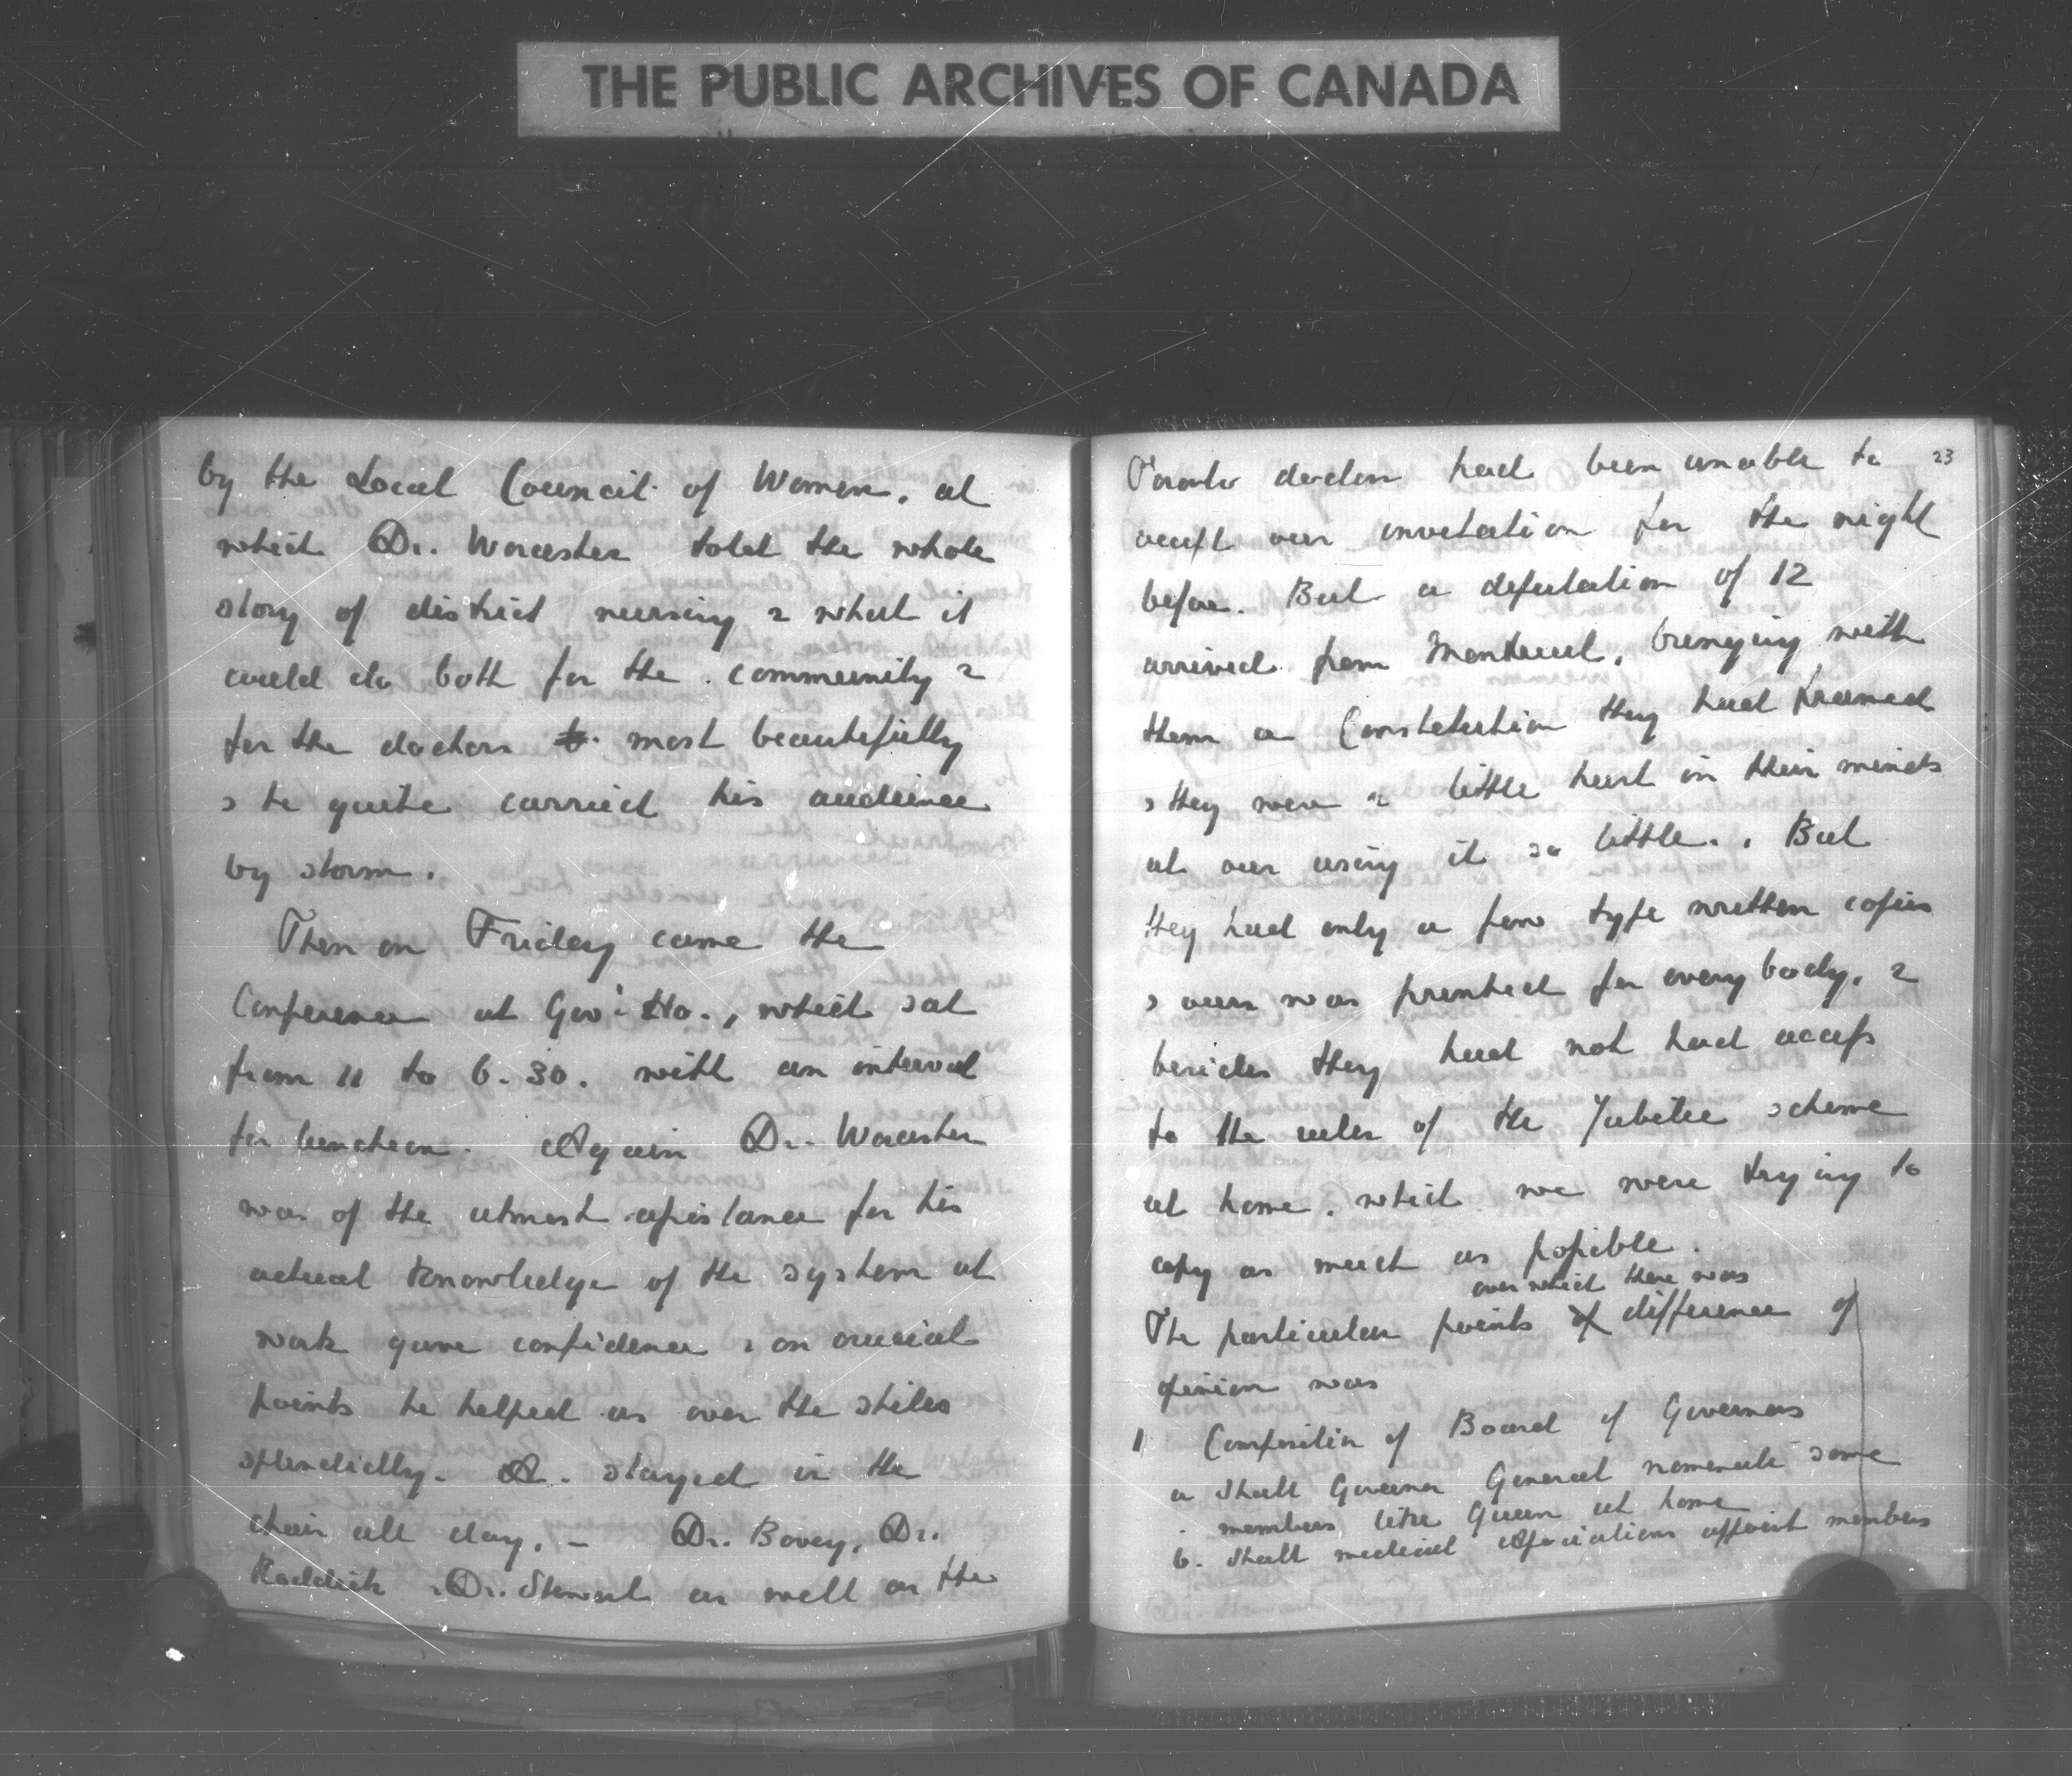 THE PUBLIC ARCHIVES OF CANADA
by the Local Council of Women, at
which Dr. Worcester told the whole
story of district nursing & what it
could do both for the community &
for the doctors to most beautifully
& he quite carried his audience
by storm.
Then on Friday came the
Conference at Govt Ho., which sat
from 11 to 6.30. with an interval
for luncheon. Again Dr. Worcester
was of the utmost assistance for his
actual knowledge of the system at
work gave confidence & on crucial
points he helped us over the stiles
splendidly. A. stayed in the
chair all day, – Dr. Bovey, Dr.
Roddick & Dr. Stewart as well as the
23
Toronto doctors had been unable to
accept our invitation for the night
before. But a deputation of 12
arrived from Montreal, bringing with
them a Constitution they had framed
& they were a little hurt in their minds
at our using it so little. But
they had only a few type written copies
& ours was printed for everybody, &
besides they had not had access
to the rules of the Jubilee scheme
at home, which we were trying to
copy as much as possible.
over which there was
The particular points of difference of
opinion was
1 Composition of Board of Governors
a Shall Governor General nominate some
members like Queen at home
b. Shall medical Associations appoint members